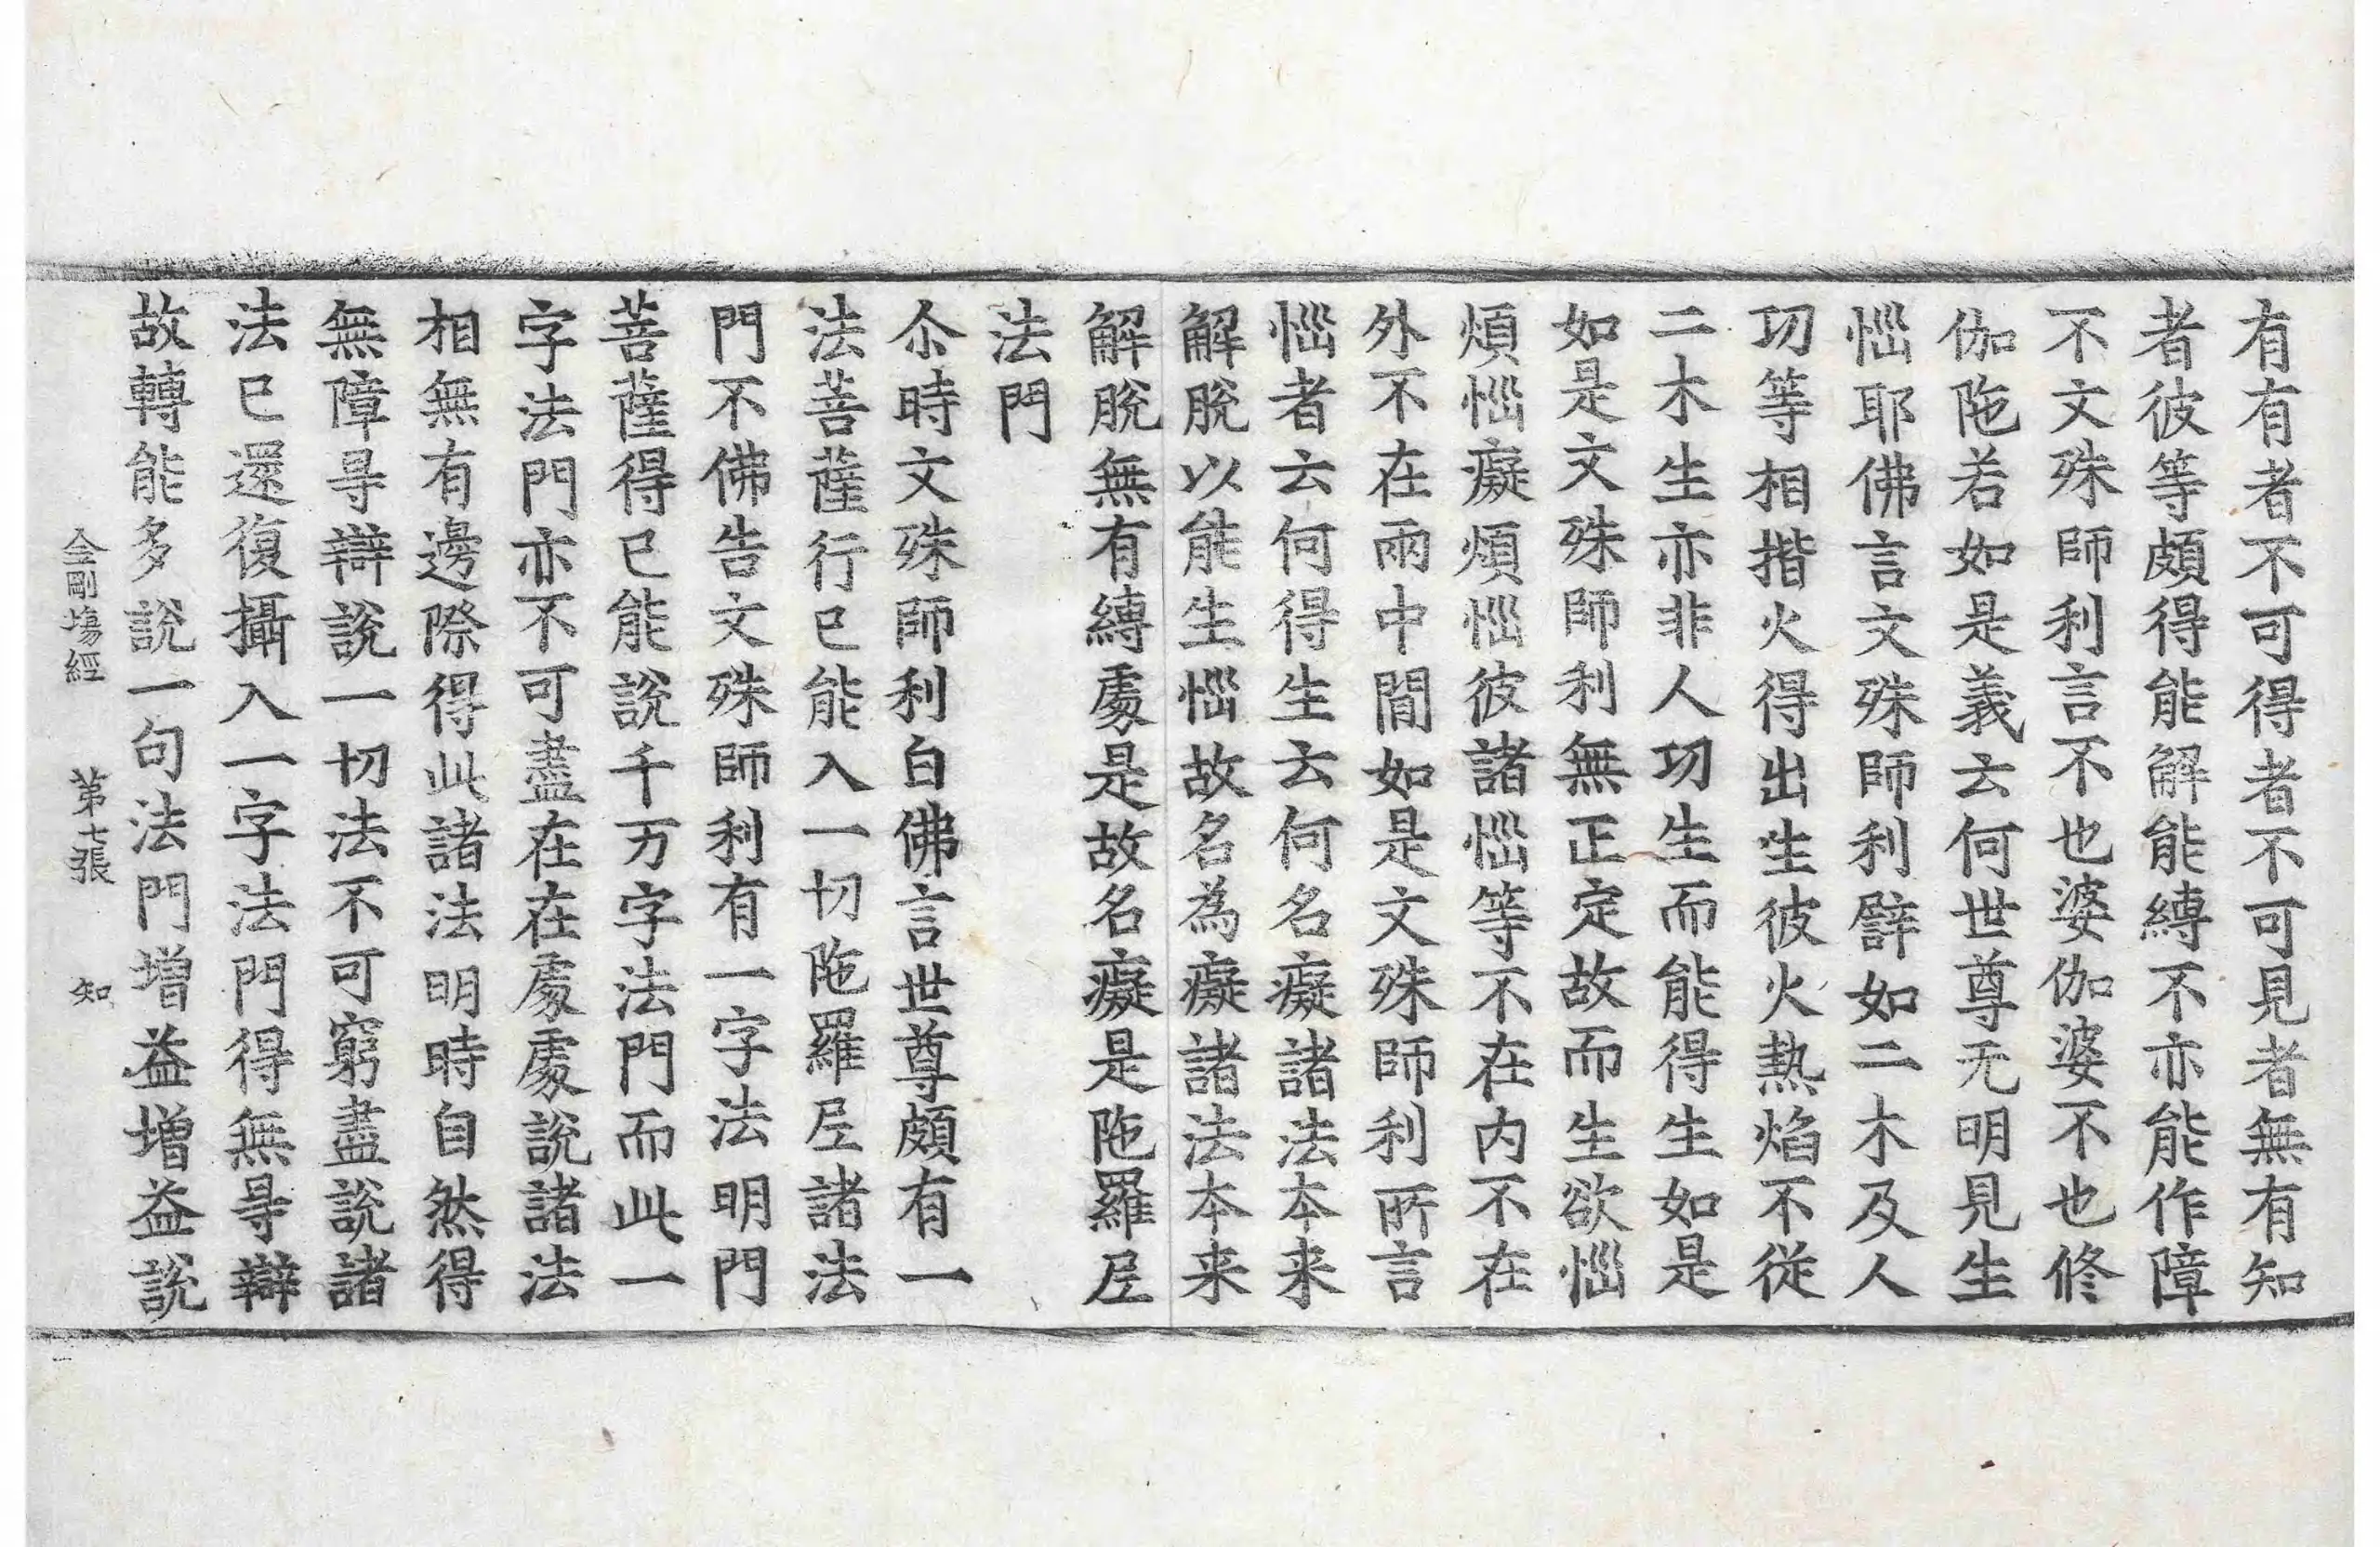 有有者不可得者不可見者無有知
者彼等頗得能解能縛不亦能作障
不文殊師利言不也婆伽婆不也修
伽陁若如是義云何世尊无明見生
惱耶佛言文殊師利譬如二木及人
功等相揩火得出生彼火熱焰不從
二木生亦非人功生而能得生如是
如是文殊師利無正定故而生欲惱
煩惱癡煩惱彼諸惱等不在内不在
外不在兩中間如是文殊師利所言
惱者云何得生云何名癡諸法本来
解脫以能生惱故名為癡諸法本来
解脫無有縛處是故名癡是陁羅尼
法門
尒時文殊師利白佛言世尊頗有一
法菩薩行已能入一切陁羅尼諸法
門不佛告文殊師利有一字法明門
菩薩得已能說千万字法門而此一
字法門亦不可盡在在處處說諸法
相無有邊際得此諸法明時自然得
無障㝵辯說一切法不可窮盡說諸
法已還復攝入一字法門得無㝵辯
故轉能多說一句法門增益增益說
金剛塲經 第七張 知